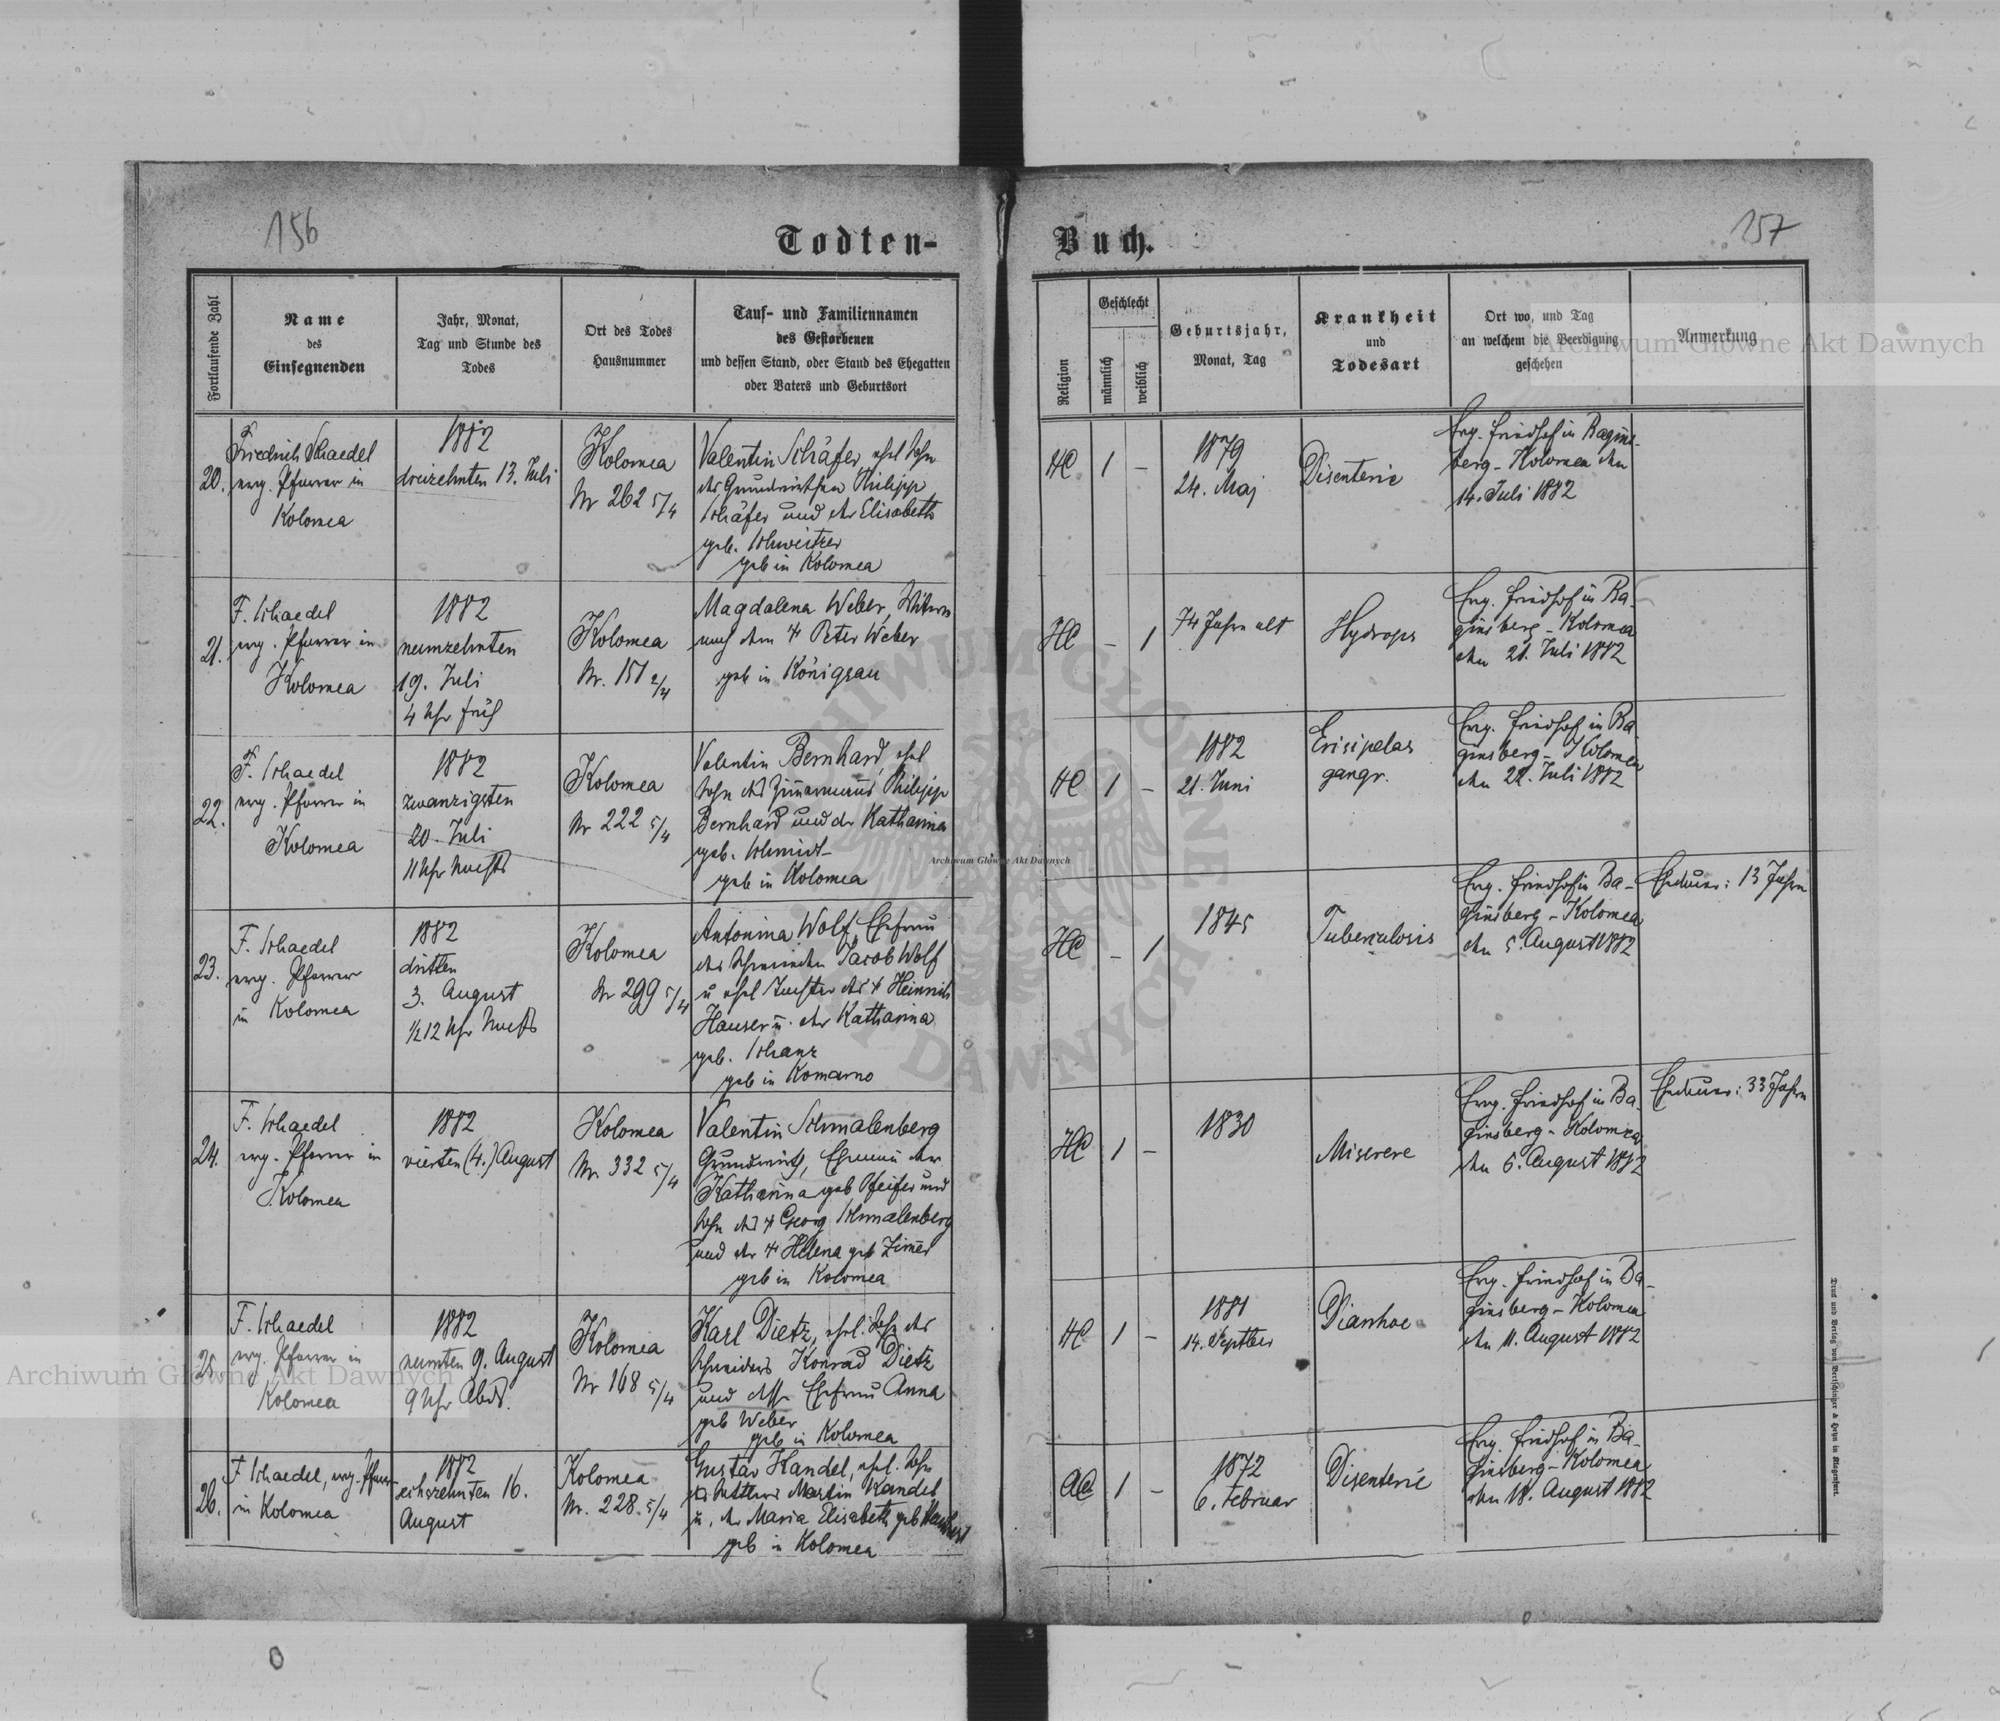 156
Todten-
Buch.
157
Fortlaufende Zahl
Name
des
Einsegnenden
Jahr, Monat,
Tag und Stunde des
Todes
Ort des Todes
Hausnummer
Tauf- und Familiennamen
des Gestorbenen
und dessen Stand, oder Stand des Ehegatten
oder Vaters und Geburtsort
Religion
Geschlecht
männlich
weiblich
Geburtsjahr,
Monat, Tag
Krankheit
und
Todesart
Ort wo, und Tag
an welchem die Beerdigung
geschehen
Anmerkung
20.
Friedrich Schaedel
evg. Pfarrer in
Kolomea
1882
dreizehnten 13. Juli
Kolomea
Nr 262 5/4
Valentin Schäfer, ehel Sohn
des Grundwirthen Philipp
Schäfer und der Elisabeth
geb. Schweitzer
geb in Kolomea
HC
1
–
1879
24. Maj
Disenterie
Evg. Friedhof in Bagins-
berg - Kolomea den
14. Juli 1882
21.
F. Schaedel
evg. Pfarrer in
Kolomea
1882
neunzehnten
19. Juli
4 Uhr früh
Kolomea
Nr. 151 2/4
Magdalena Weber, Witwe
nach dem † Peter Weber
geb in Königsau
HC
–
1
74 Jahre alt
Hydrops
Evg. Friedhof in Ba-
ginsberg - Kolomea
den 21. Juli 1882
22.
F. Schaedel
evg. Pfarrer in
Kolomea
1882
zwanzigsten
20. Juli
11 Uhr Nachts
Kolomea
Nr 222 5/4
Valentin Bernhard, ehel
Sohn des Zimmermanns Philipp
Bernhard und der Katharina
geb. Schmidt
geb in Kolomea
HC
1
–
1882
21. Juni
Erisipelas
gangr.
Evg. Friedhof in Ba-
ginsberg - Kolomea
den 22. Juli 1882
23.
F. Schaedel
evg. Pfarrer
in Kolomea
1882
dritten
3. August
½12 Uhr Nachts
Kolomea
Nr 299 5/4
Antonina Wolf, Ehefrau
des Schmieden Jacob Wolf
u ehel Tochter des † Heinrich
Hauser u. der Katharina
geb. Schanz
geb in Komarno
HC
–
1
1845
Tuberculosis
Evg. Friedhof in Ba-
ginsberg - Kolomea
den 5. August 1882
Ehedauer: 13 Jahre
24.
F. Schaedel
evg. Pfarrer in
Kolomea
1882
vierten (4.) August
Kolomea
Nr. 332 5/4
Valentin Schmalenberg
Grundwirth, Ehemann der
Katharina geb Pfeifer und
Sohn des † Georg Schmalenberg
und der † Helena geb Zimer
geb in Kolomea
HC
1
–
1830
Miserere
Evg. Friedhof in Ba-
ginsberg - Kolomea
den 6. August 1882
Ehedauer: 33 Jahre
25.
F. Schaedel
evg. Pfarrer in
Kolomea
1882
neunten 9. August
9 Uhr Abds.
Kolomea
Nr 168 5/4
Karl Dietz, ehel. Sohn des
Schneiders Konrad Dietz
und dessen Ehefrau Anna
geb Weber
geb in Kolomea
HC
1
–
1881
14. Septber
Diarrhoe
Evg. Friedhof in Ba-
ginsberg - Kolomea
den 11. August 1882
26.
F. Schaedel, evg. Pfarrer
in Kolomea
1882
sechszehnten 16.
August
Kolomea
Nr. 228. 5/4
Gustav Kandel, ehel. Sohn
des Sattlers Martin Kandel
u. der Maria Elisabeth geb
geb in Kolomea
AC
1
–
1872
6. Februar
Disenterie
Evg. Friedhof in Ba-
ginsberg - Kolomea
den 18. August 1882
Druck und Verlag von Bertschinger & Heyn in Klagenfurt.
Archiwum Główne Akt Dawnych
Archiwum Główne Akt Dawnych
Archiwum Główne Akt Dawnych
ARCHIWUM GŁÓWNE AKT DAWNYCH